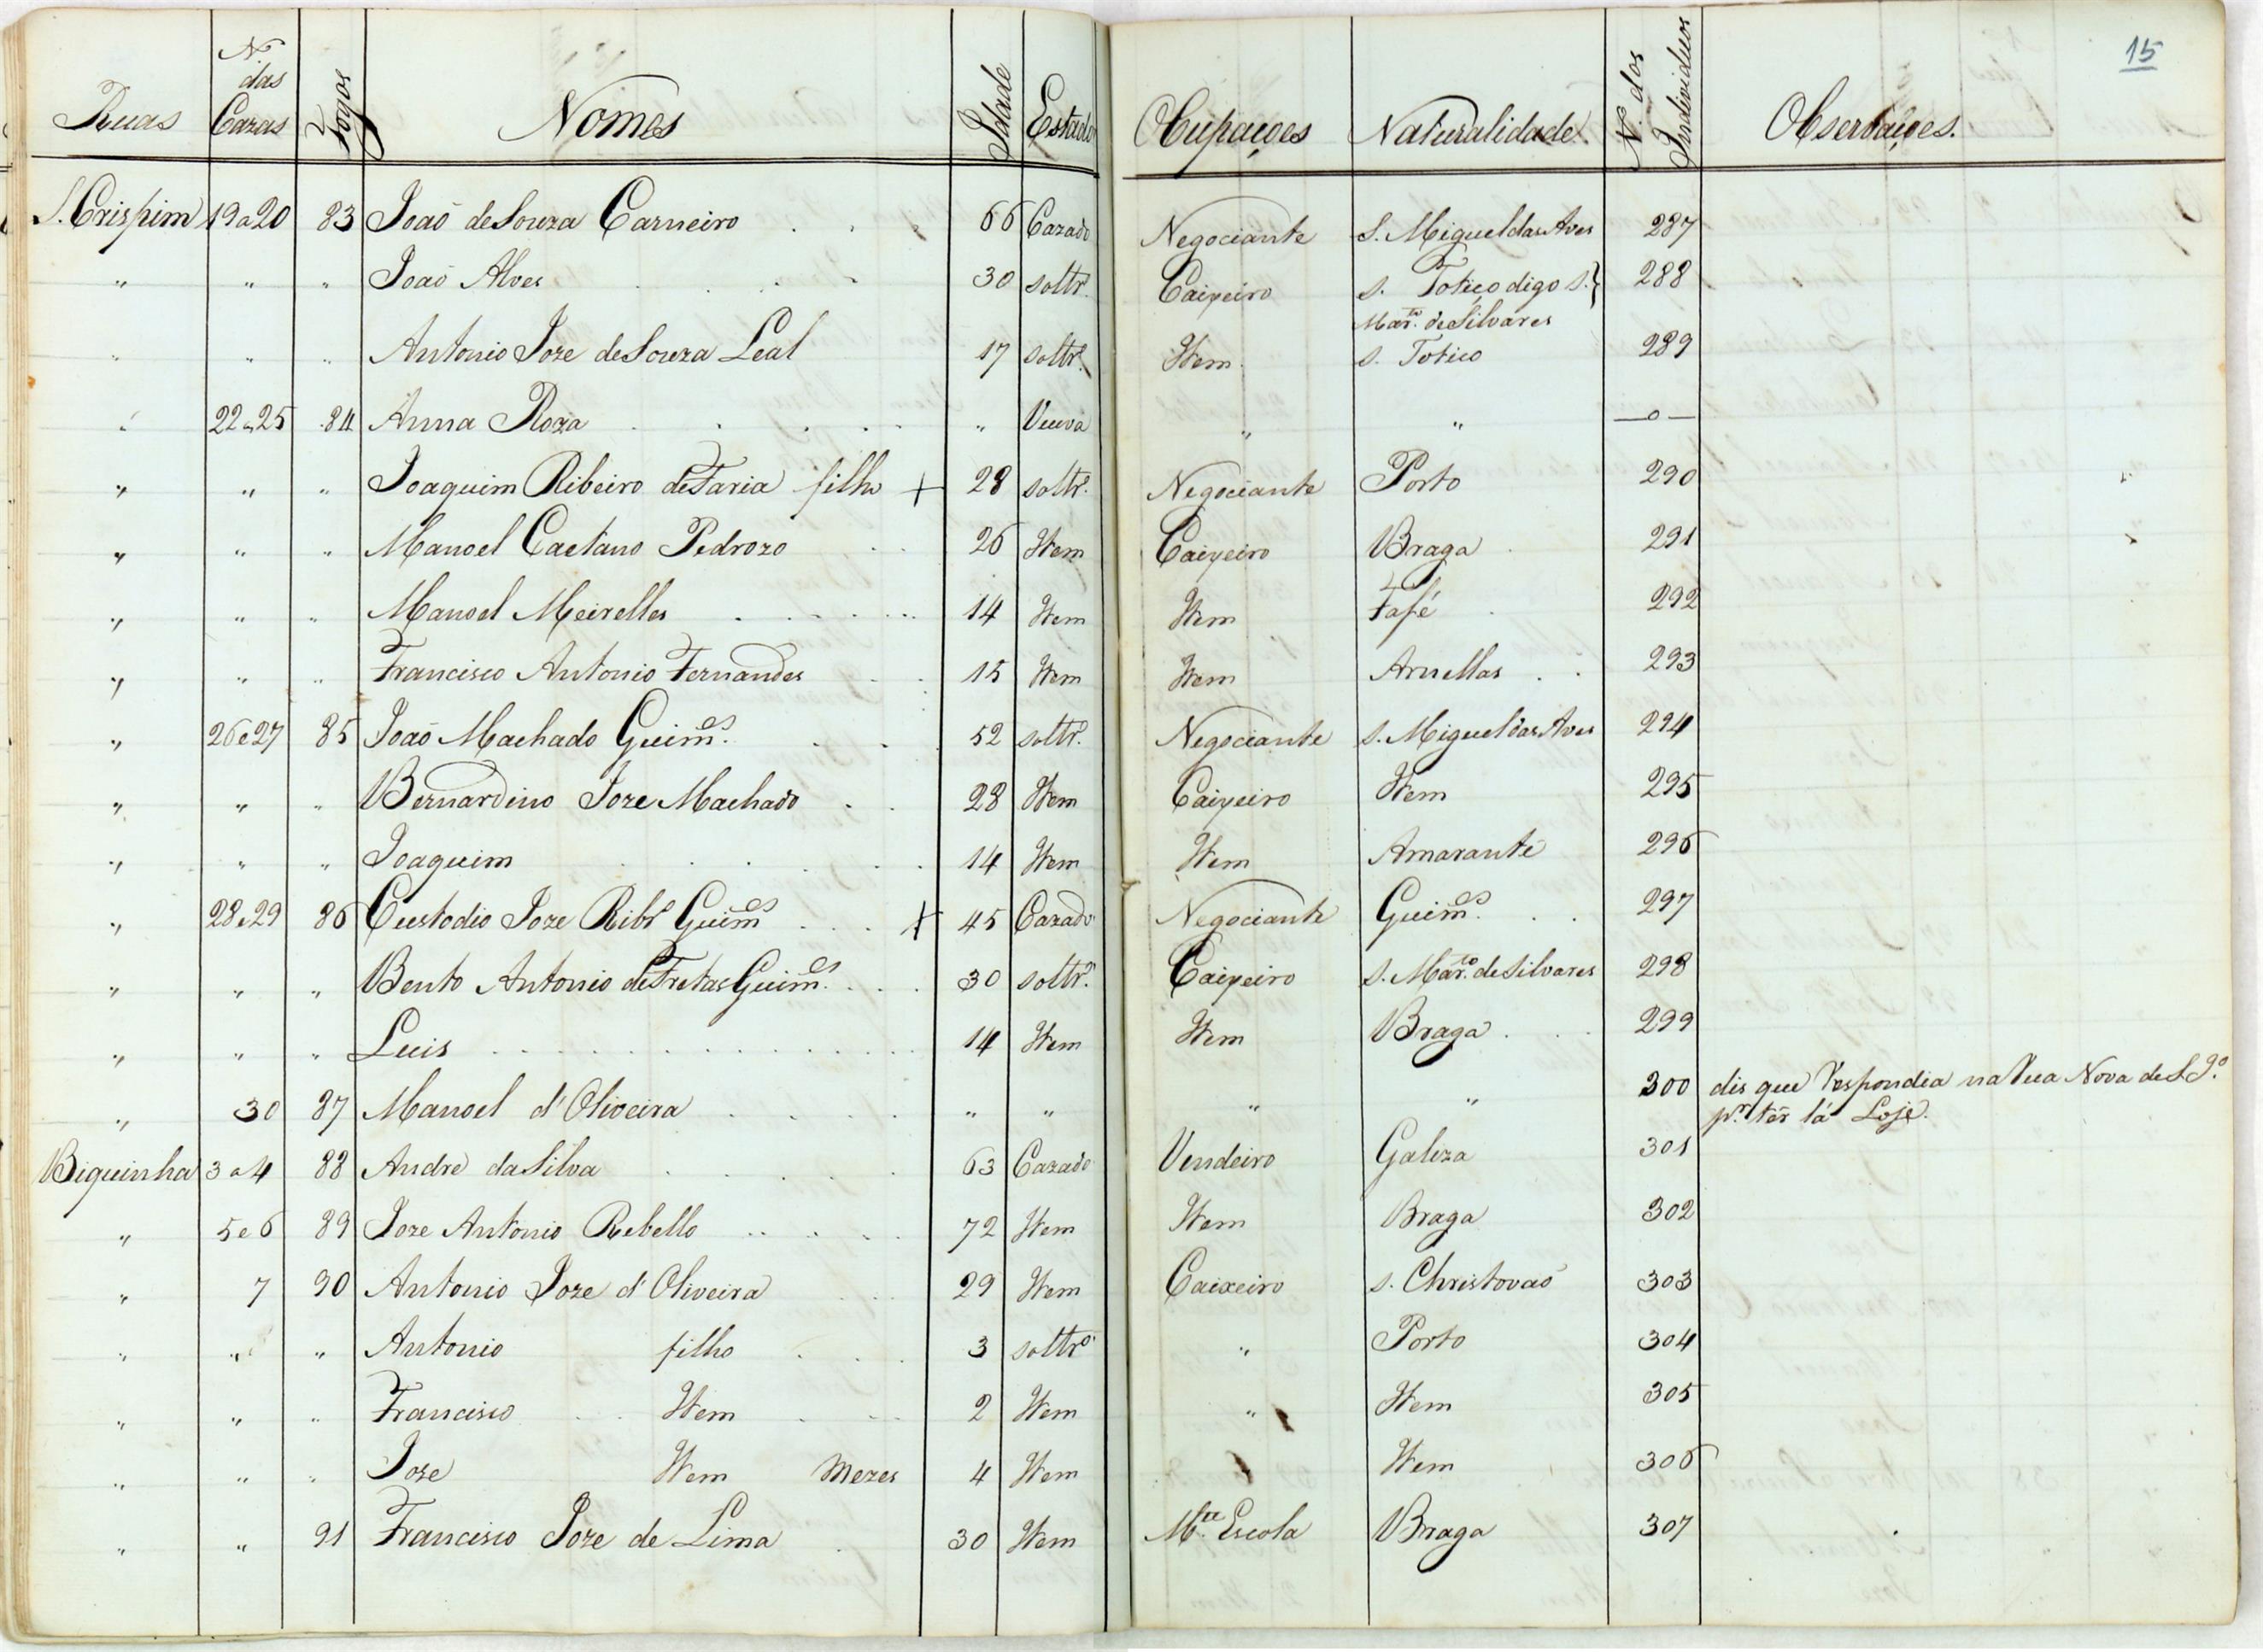 15
Ruas N. das Cazas Fogos Nomes Idade Estado Occupaçoes Naturalidade N.º dos Individuos Observaçoes.
S. Crispim 19 a 20 83 Joaõ de Souza Carneiro 66 Cazado Negociante S. Miguel das Aves 287
" " " Joaõ Alves 30 soltrº Caixeiro S. Toticodigo S. } 288
Mar.to de Silvares
" " " Antonio Joze de Souza Leal 17 soltrº Item S. Totico 289
" 22 a 25 84 Anna Roza " Viuva " " —o—
" " " Joaquim Ribeiro de Faria filho + 28 soltrº Negociante Porto 290
" " " Manoel Caetano Pedrozo 26 Item Caixeiro Braga 291
" " " Manoel Meirelles 14 Item Item Fafé 292
" " " Francisco Antonio Fernandes 15 Item Item Arnellas 293
" 26 e 27 85 Joaõ Machado Guim.es 52 soltrº Negociante S. Miguel das Aves 294
" " " Bernardino Joze Machado 28 Item Caixeiro Item 295
" " " Joaquim 14 Item Item Amarante 296
" 28 e 29 86 Custodio Joze Ribrº Guim.es + 45 Cazado Negociante Guim.es 297
" " " Bento Antonio de Fretas Guim.es 30 soltrº Caixeiro S. Mar.to de Silvares 298
" " " Luis 14 Item Item Braga 299
" 30 87 Manoel d'Oliveira " " " " 300 dis que respondia na Rua Nova de S. Jº.
p.r ter lá Loje.
Biquinha 3 a 4 88 Andre da Silva 63 Cazado Vendeiro Galiza 301
" 5 e 6 89 Joze Antonio Rebello 72 Item Item Braga 302
" 7 90 Antonio Joze d'Oliveira 29 Item Caixeiro S. Christovaõ 303
" " " Antonio filho 3 soltrº " Porto 304
" " " Francisco Item 2 Item " Item 305
" " " Joze Item Mezes 4 Item Item 306
" " 91 Francisco Joze de Lima 30 Item M.re Escola Braga 307